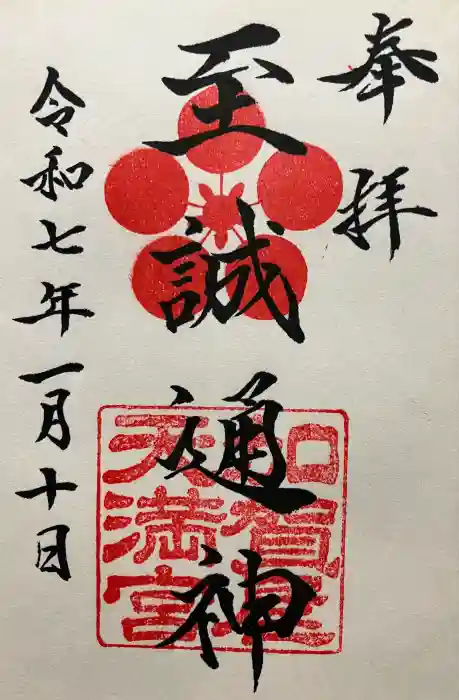 奉拝
至誠通神
加賀屋
天満宮
令和七年一月十日